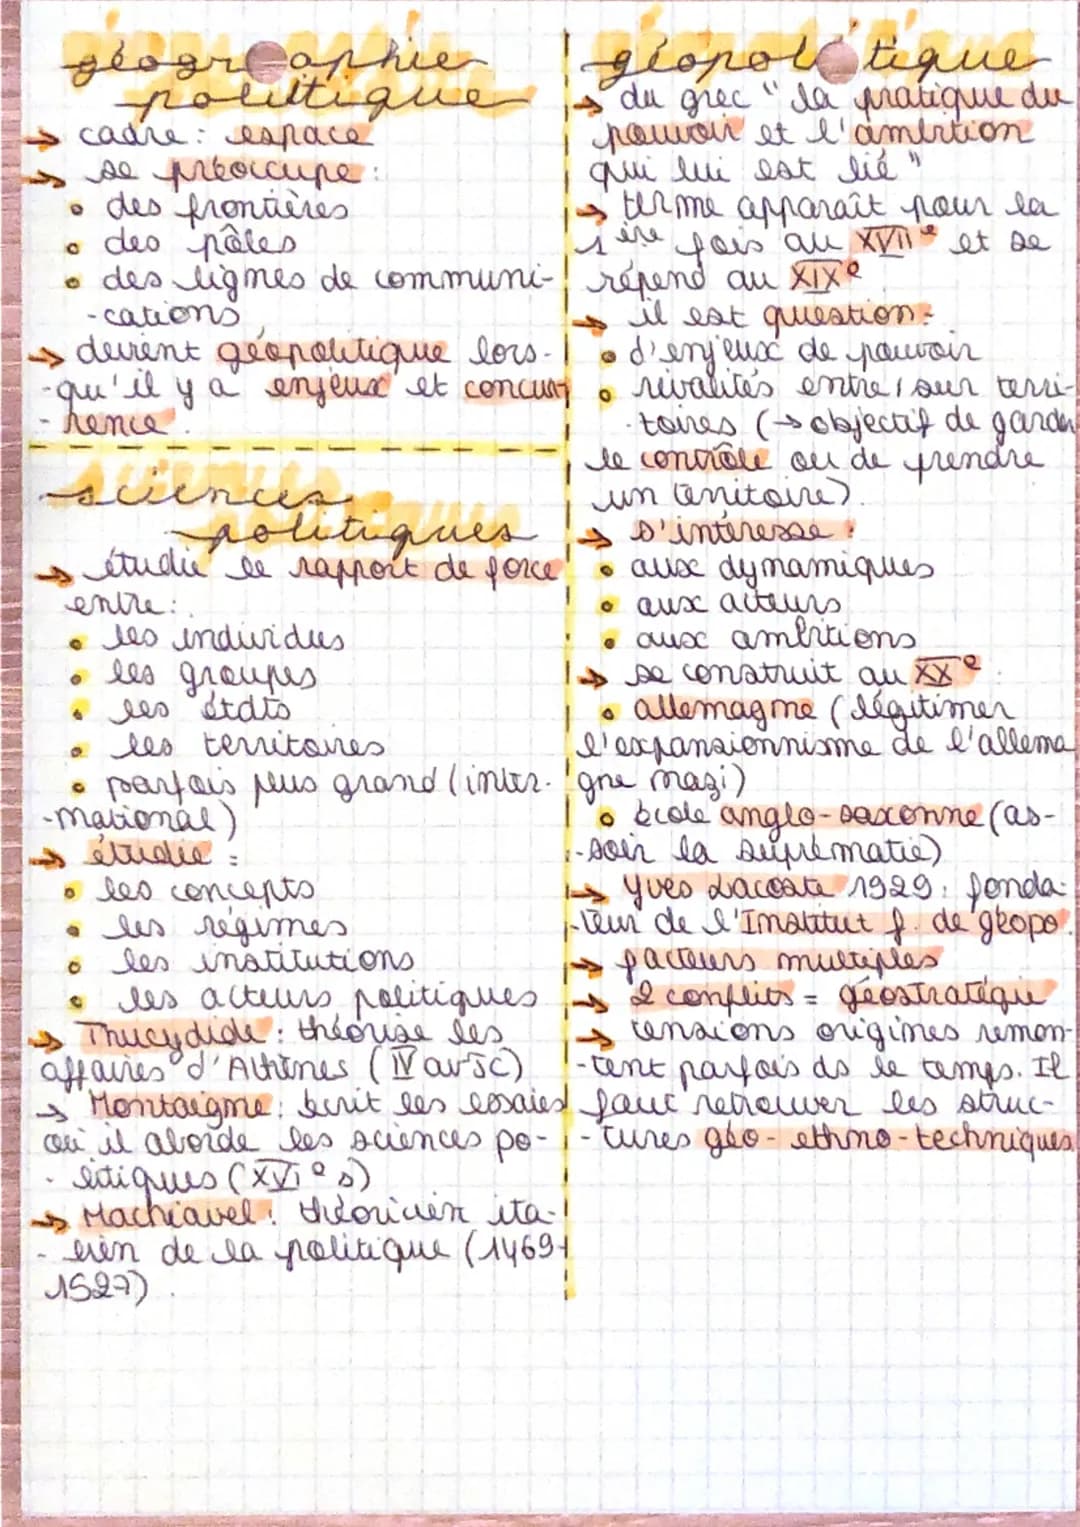 géographie
politique
→ cadre : espace
→ se préoccupe :
• des frontières
• des pôles
• des lignes de communi-
-cations
→ devient géopolitique lors-
-qu'il y a enjeux et concur-
-rence.
sciences
politiques
→ étudie le rapport de force
entre :
• les individus
• les groupes
• les états
• les territoires
• parfois plus grand (inter-
-national)
→ étudie :
• les concepts
• les régimes
• les institutions
• les acteurs politiques
→ Thucydide : théorise les
affaires d'Athènes (IV av JC)
→ Montaigne : écrit les essaies
où il aborde les sciences po-
-litiques (XVI e s)
→ Machiavel : théoricien ita-
-lien de la politique (1469-
1527).
géopolitique
→ du grec "la pratique du
pouvoir et l'ambition
qui lui est lié"
→ terme apparaît pour la
1 ère fois au XVII e et se
répend au XIX e
→ il est question :
• d'enjeux de pouvoir
• rivalités entre / sur terri-
-toires (→ objectif de garder
le contrôle ou de prendre
un territoire)
→ s'intéresse :
• aux dynamiques
• aux acteurs
• aux ambitions
→ se construit au XX e
• allemagne (légitimer
l'expansionnisme de l'allema
gne nazi)
• école anglo-saxonne (as-
-soir la suprématie)
→ Yves Lacoste 1929 : fonda-
-teur de l'Institut f. de géopo.
→ facteurs multiples
→ 2 conflits = géostratégie
→ tensions origines remon-
-tent parfois ds le temps. Il
faut retrouver les struc-
-tures géo-ethno-techniques